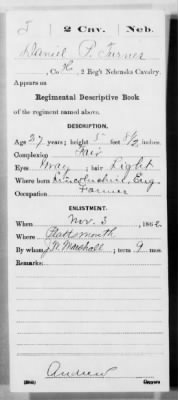 T | 2 Cav. | Neb.
Daniel P. Turner
, Co. H, 2 Reg't Nebraska Cavalry.
Appears on
Regimental Descriptive Book
of the regiment named above.
DESCRIPTION.
Age 27 years; height 5 feet 8 1/2 inches.
Complexion Fair
Eyes Gray; hair Light
Where born Lincolnshire, Eng.
Occupation Farmer
ENLISTMENT.
When Nov. 3, 1862.
Where Plattsmouth
By whom J. W. Marshall; term 9 mos.
Remarks:
Andrew
Copyist.